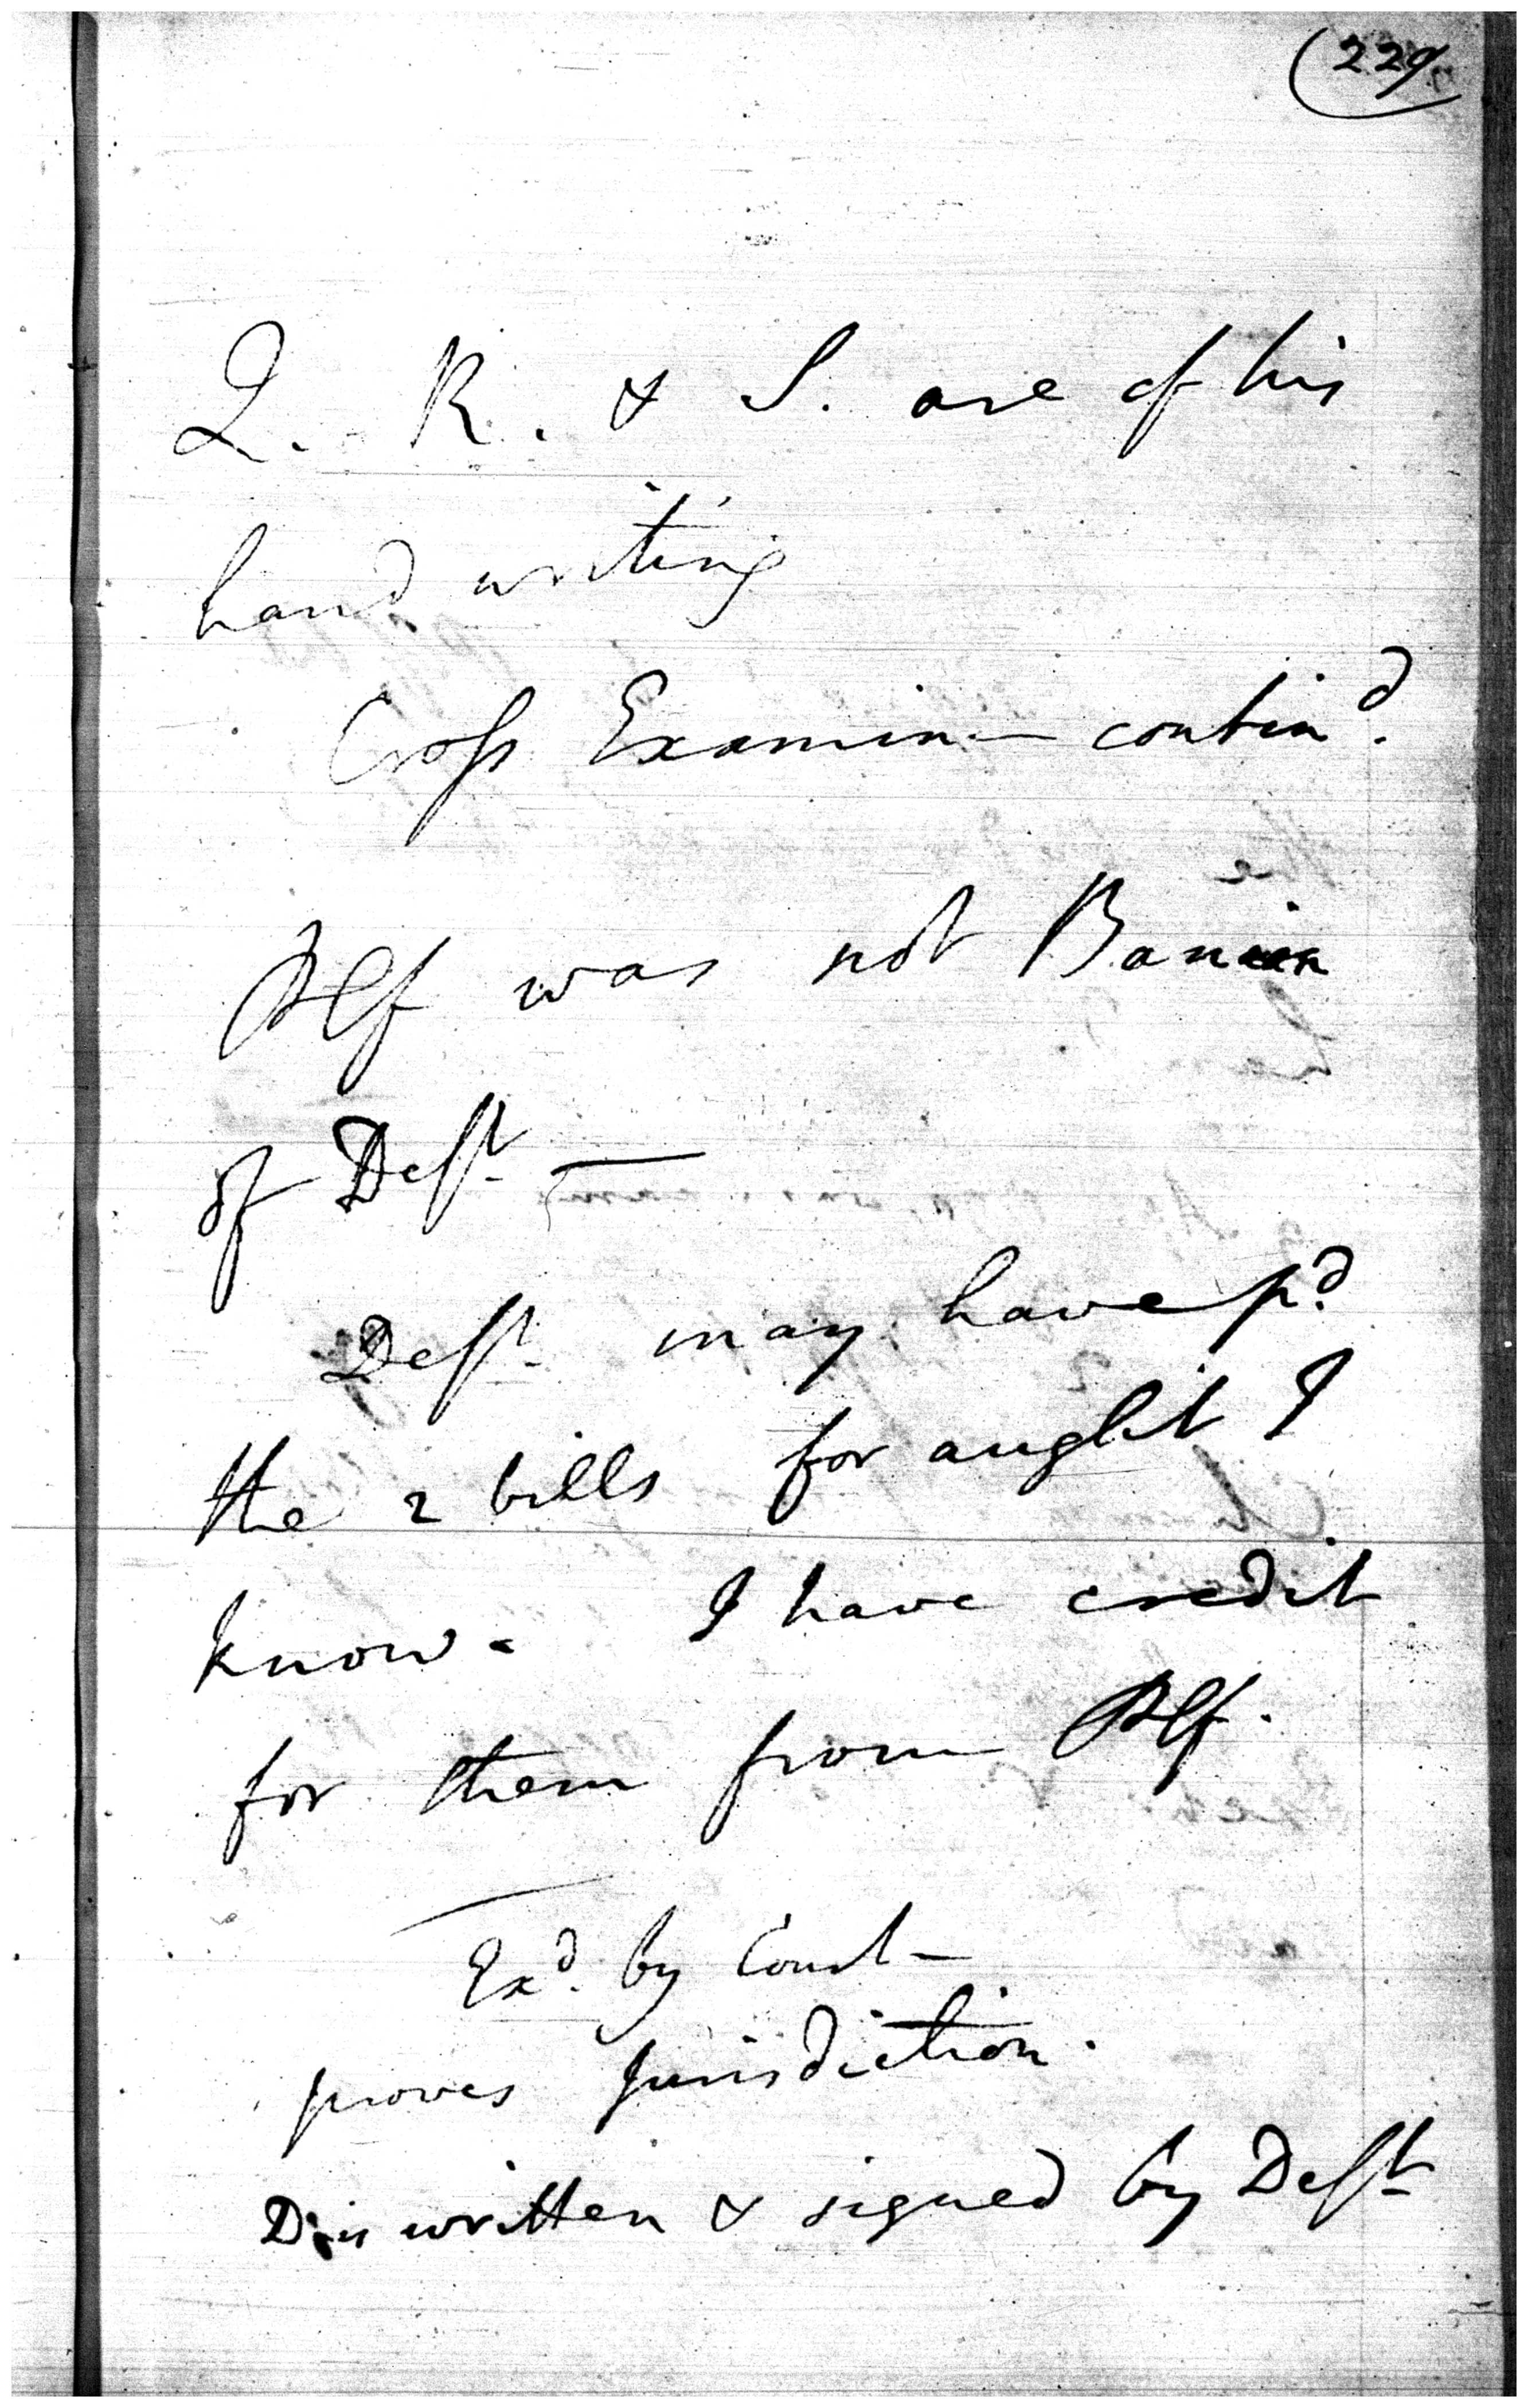 (229
Q. R. & S. are of his
hand writing
Cross Examin— contin^d.
Plf was not Banian
of Deft —
Deft may have p^d
the 2 bills for aught I
know. I have credit
for them from Plf.
Ex^d. by Court —
proves Jurisdiction.
D. is written & signed by Deft